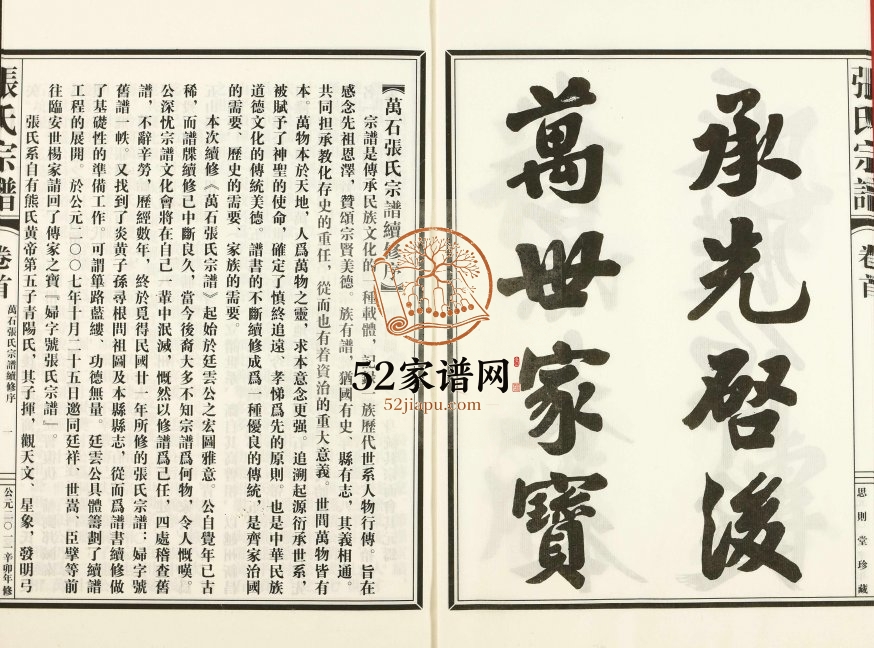 張氏宗譜
卷首
思則堂珍藏
承先啓後
萬世家寶
【萬石張氏宗譜續修序】
宗譜是傳承民族文化的一種載體，記一族歷代世系人物行傳。旨在
感念先祖恩澤，贊頌宗賢美德。族有譜，猶國有史、縣有志，其義相通。
共同担承教化存史的重任，從而也有着資治的重大意義。世間萬物皆有
本。萬物本於天地，人爲萬物之靈，求本意念更强。追溯起源衍承世系，
被賦予了神聖的使命，確定了慎終追遠、孝悌爲先的原則。也是中華民族
道德文化的傳統美德。譜書的不斷續修成爲一種優良的傳統，是齊家治國
的需要、歷史的需要、家族的需要。
本次續修《萬石張氏宗譜》起始於廷雲公之宏圖雅意。公自覺年已古
稀，而譜牒續修已中斷良久，當今後裔大多不知宗譜爲何物，令人慨嘆。
公深忧宗譜文化會將在自己一輩中泯滅，慨然以修譜爲己任，四處稽查舊
譜，不辭辛勞，歷經數年，終於覓得民國廿一年所修的張氏宗譜：婦字號
舊譜一帙。又找到了炎黃子孫尋根問祖圖及本縣縣志，從而爲譜書續修做
了基礎性的準備工作。可謂篳路藍縷、功德無量。廷雲公具體籌劃了續譜
工程的展開。於公元二〇〇七年十月二十五日邀同廷祥、世嵩、臣擘等前
往臨安世楊家請回了傳家之寶『婦字號張氏宗譜』。
張氏系自有熊氏黃帝第五子青陽氏，其子揮，觀天文、星象，發明弓
張氏宗譜
卷首
萬石張氏宗譜續修序
一
公元二〇一二辛卯年修
52家谱网
52jiapu.com